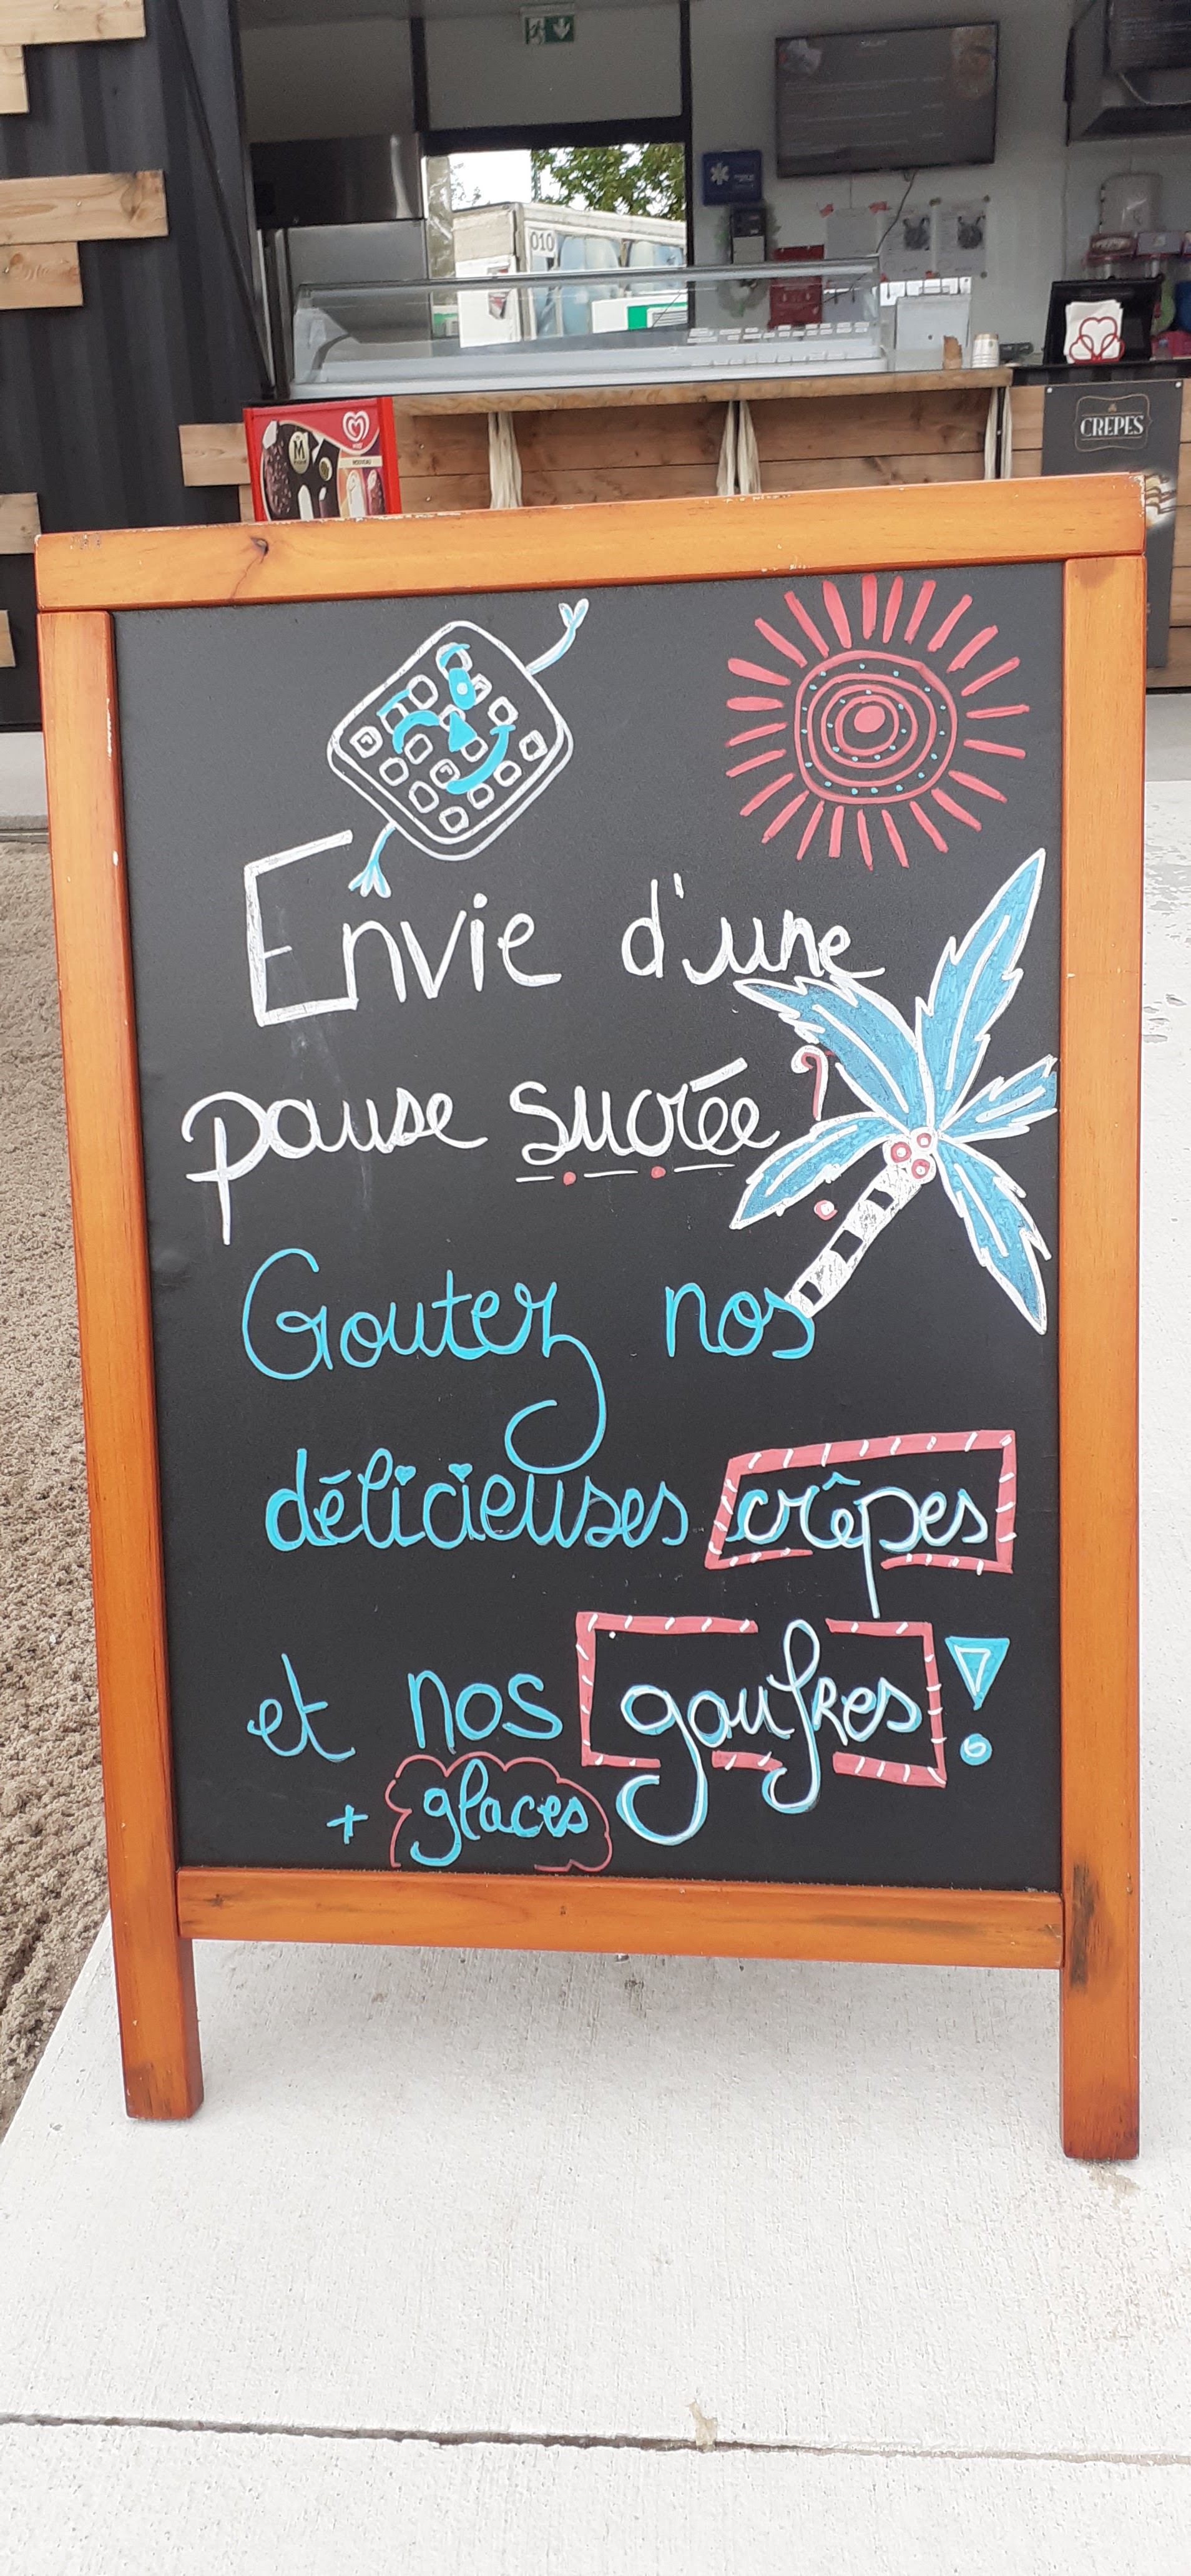 010
CRÊPES
Envie d'une
pause sucrée ?
Goutez nos
délicieuses crêpes
et nos gaufres !
+ glaces